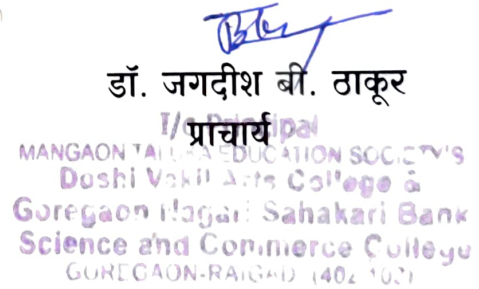 डॉ. जगदीश बी. ठाकूर
I/c Principal
प्राचार्य
MANGAON TALUKA EDUCATION SOCIETY'S
Doshi Vakil Arts College &
Goregaon Nagari Sahakari Bank
Science and Commerce College
GOREGAON-RAIGAD (402 103)